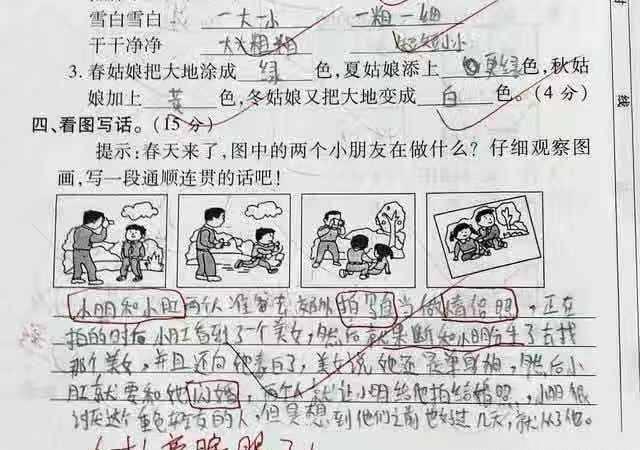 雪白雪白 一大一小 一粗一细
干干净净 大大粗粗 短短小小
3. 春姑娘把大地涂成 绿 色,夏姑娘添上 更绿 色,秋姑
娘加上 黄 色,冬姑娘又把大地变成 白 色。(4 分)
四、看图写话。(15 分)
提示:春天来了,图中的两个小朋友在做什么?仔细观察图
画,写一段通顺连贯的话吧!
小明和小红两个人准备去郊外拍写真当做情侣照,正在
拍的时后小红看到了一个美女,然后就果断和小明分手了去找
那个美女,并且还向她表白了,美女说她还是单身狗,然后小
红就要和她闪婚,两个人就让小明给他拍结婚照,小明很
讨厌这个重色轻友的人,但是想到他们之前也好过几天,就从了他。
线